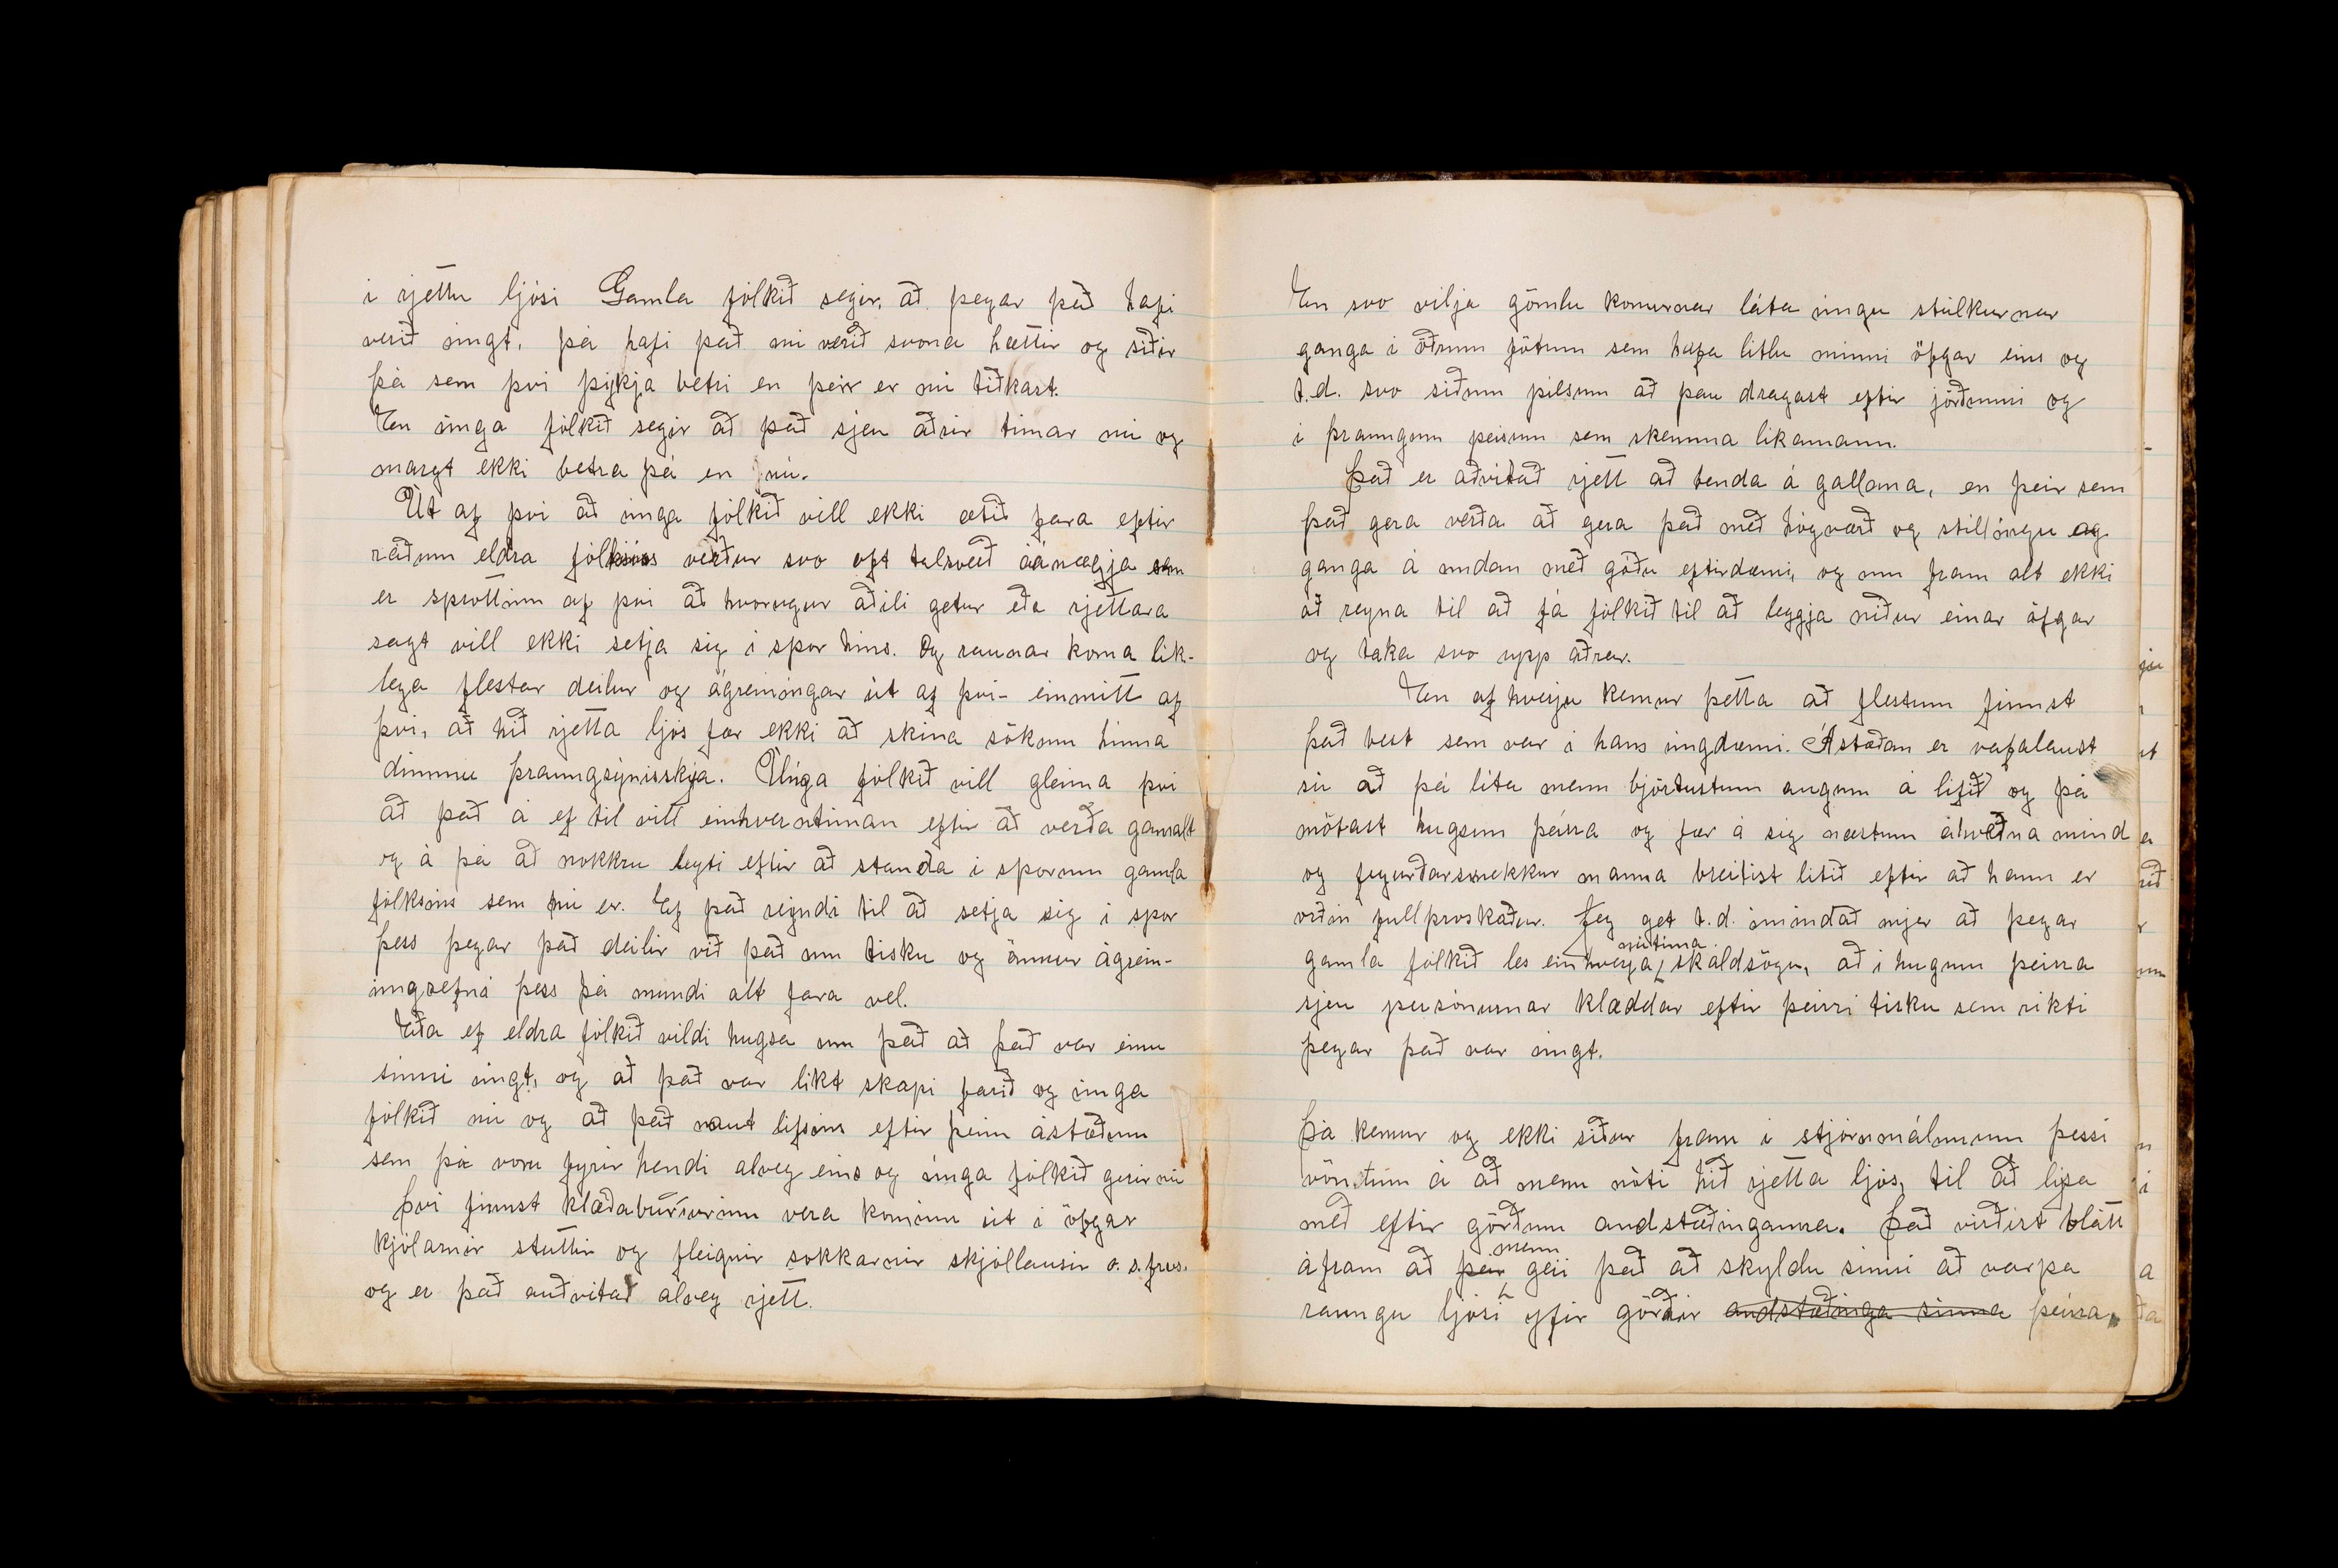 í rjettu ljósi Gamla fólkið segir, að þegar það hafi
verið úngt, þá hafi það nú verið svona hættir og siðir
þá sem því þykja betri en þeir er nú tiðkast.
En únga fólkið segir að það sjeu aðrir timar nú og
margt ekki betra þá en nú.
Út af því að únga fólkið vill ekki ætið fara eftir
ráðum eldra fólksins verður svo oft talsveð óánægja sem
er sprottinn af því að hvorugur aðili getur eða rjettara
sagt vill ekki setja sig í spor hins. Og raunar koma lik-
lega flestar deilur og ágreiningar út af því - einmitt af
því, að hið rjetta ljós fær ekki að skína sökum hinna
dimmu þraungsýnisskýja. Únga fólkið vill gleima því
að það á ef til vill einhverntiman eftir að verða gamalt
og á þá að nokkru leyti eftir að standa í sporum gamla
fólksins sem nú er. Ef það reyndi til að setja sig í spor
þess þegar það deilir við það um tisku og önnur ágrein-
ingsefni þess þá mundi alt fara vel.
Eða ef eldra fólkið vildi hugsa um það að það var einu
sinni úngt, og að það var likt skapi farið og únga
fólkið nú og að það naut lifsins eftir þeim ástæðum
sem þá voru fyrir hendi alveg eins og únga fólkið gerir nú
Því finnst klæðaburðurinn vera kominn út í öfgar
kjólarnir stuttir og fleignir sokkarnir skjóllausir o. s. frv.
og er það auðvitað alveg rjett.
En svo vilja gömlu konurnar láta úngu stúlkurnar
ganga í öðrum fötum sem hafa litlu minni öfgar eins og
t.d. svo siðum pilsum að þau dragast eftir jörðunni og
í þraungum peisum sem skemma likamann.
Það er aðvitað rjett að benda á gallana, en þeir sem
það gera verða að gera það með hógværð og stillingu og
ganga á undan með góðu eftirdæmi, og um fram alt ekki
að reyna til að fá fólkið til að leggja niður einar öfgar
og taka svo upp aðrar.
En af hverju kemur þetta að flestum finnst
það best sem var í hans úngdæmi. Ástæðan er vafalaust
sú að þá líta menn björtustum augum á lifið og þá
mótast hugsun þeirra og fær á sig næstum ákveðna mind
og fegurðarsmekkur manna breitist litið eftir að hann er
orðin fullþroskaður. Jeg get t.d. imindað mjer að þegar
gamla fólkið les einhverja nútíma skáldsögu, að í hugum þeirra
sjeu persónurnar klæddar eftir þeirri tisku sem rikti
þegar það var úngt.
Þá kemur og ekki siður fram í stjórnmálunum þessi
vöntun á að menn nóti hið rjetta ljós, til að lýsa
með eftir görðum andstæðinganna. Það virðist blátt
áfram að þar menn geri það að skyldu sinni að varpa
raungu ljósi yfir görðir andstæðinga sinna þeirra,